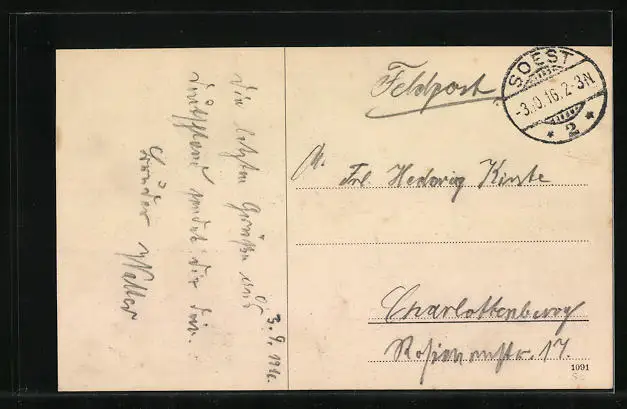 Feldpost
SOEST
-3.10.16.2-3N
* 2 *
An
Frl. Hedwig Kinte
Charlottenburg
Rosinenstr. 17.
1091
3. 9. 1916.
Die letzten Grüße aus
Deutschland sendet dir dein
Bruder Walter